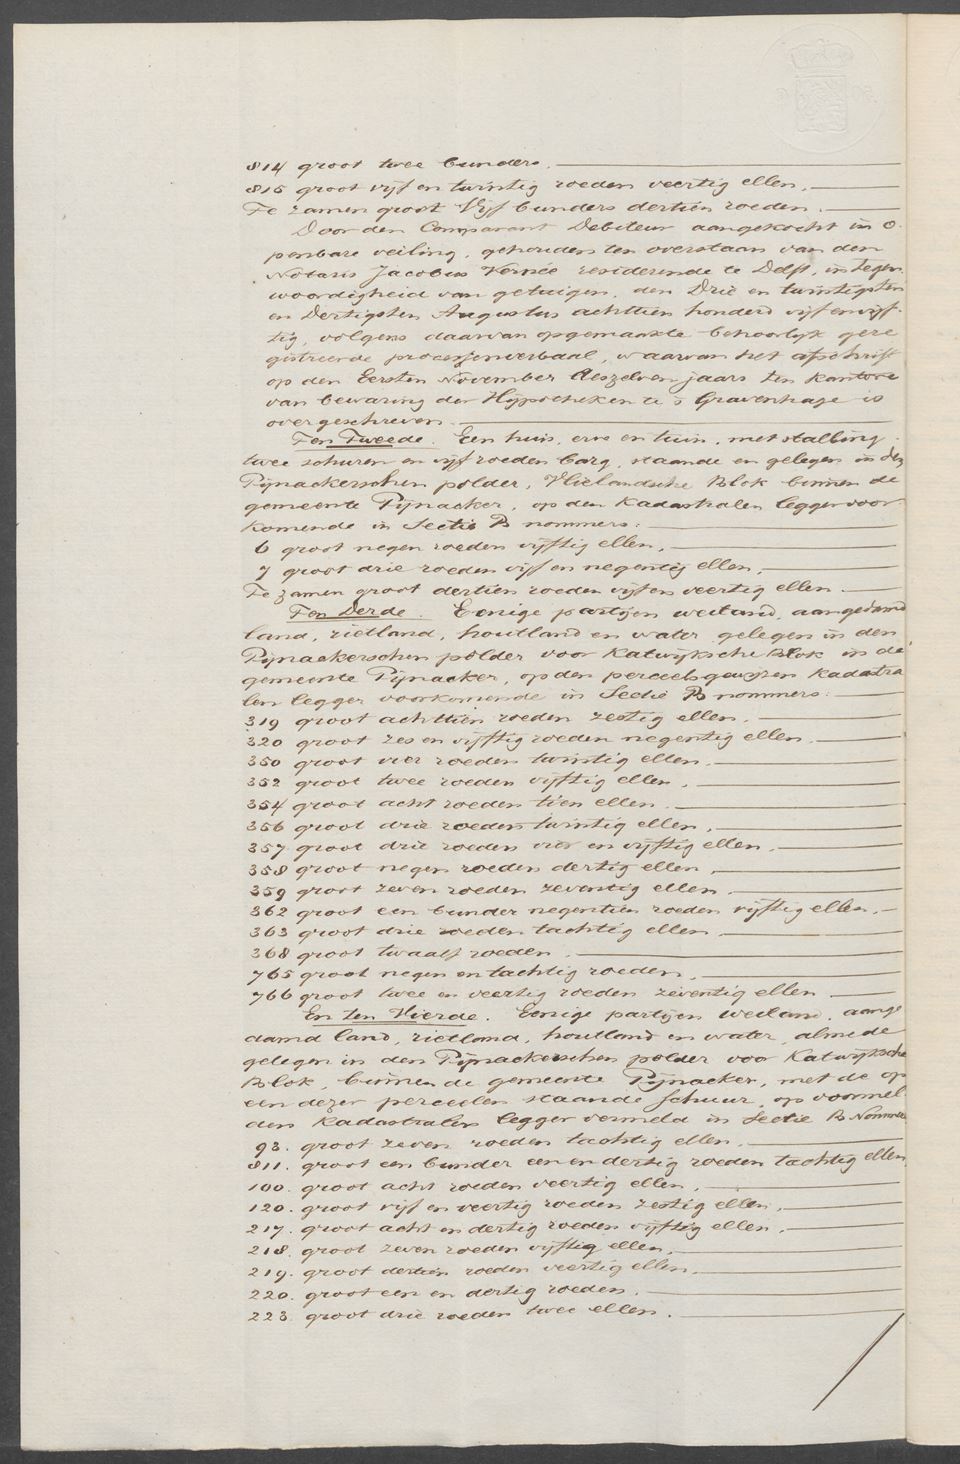 814 groot twee bunders.
815 groot vijf en twintig roeden veertig ellen,
Te zamen groot Vijf bunders dertien roeden.
Door den Comparant Debiteur aangekocht in o-
penbare veiling, gehouden ten overstaan van den
Notaris Jacobus Vernée resideerende te Delft, in tegen-
woordigheid van getuigen, den Drie en twintigsten
en Dertigsten Augustus achttien honderd vijf en vijf-
tig, volgens daarvan opgemaakte behoorlijk gere-
gistreerde processenverbaal, waarvan het afschrift
op den Eersten November deszelven jaars ten kantore
van bewaring der Hypotheken te 's Gravenhage is
overgeschreven.
Ten Tweede. Een huis, erve en tuin, met stalling
twee schuren en vijf roeden barg, staande en gelegen in den
Pijnackerschen polder, Vlielandsche Blok binnen de
gemeente Pijnacker, op den Kadastralen legger voor-
komende in Sectie B nommers:
6 groot negen roeden vijftig ellen,
7 groot drie roeden vijf en negentig ellen,
Te zamen groot dertien roeden vijf en veertig ellen.
Ten Derde. Eenige partijen weiland, aangedamd
land, rietland, houtland en water gelegen in den
Pijnackerschen polder voor Katwijksche Blok in de
gemeente Pijnacker, op den perceelsgewijzen Kadastra
len legger voorkomende in Sectie B nommers:
319 groot achttien roeden zestig ellen,
320 groot zes en vijftig roeden negentig ellen.
350 groot vier roeden twintig ellen,
352 groot twee roeden vijftig ellen,
354 groot acht roeden tien ellen.
356 groot drie roeden twintig ellen,
357 groot drie roeden vier en vijftig ellen,
358 groot negen roeden dertig ellen,
359 groot zeven roeden zeventig ellen.
362 groot een bunder negentien roeden vijftig ellen,
363 groot drie roeden tachtig ellen,
368 groot twaalf roeden,
765 groot negen en tachtig roeden,
766 groot twee en veertig roeden zeventig ellen
En ten Vierde. Eenige partijen weiland, aange
damd land, rietland, houtland en water, almede
gelegen in den Pijnackerschen polder voor Katwijksche
Blok, binnen de gemeente Pijnacker, met de op
een dezer perceelen staande schuur, op voormel-
den Kadastralen legger vermeld in Sectie B Nommers
93. groot zeven roeden tachtig ellen,
811. groot een bunder een en dertig roeden tachtig ellen,
100. groot acht roeden veertig ellen,
120. groot vijf en veertig roeden zestig ellen,
217. groot acht en dertig roeden vijftig ellen,
218. groot zeven roeden vijftig ellen,
219. groot dertien roeden veertig ellen,
220. groot een en dertig roeden,
223. groot drie roeden twee ellen.